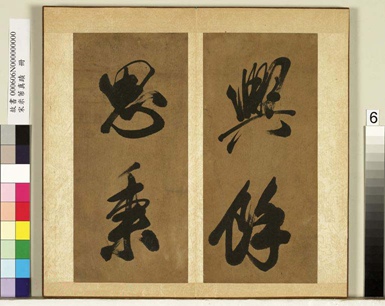 興餘
思秉
故書 000606N000000000
宋米芾真蹟 冊
6